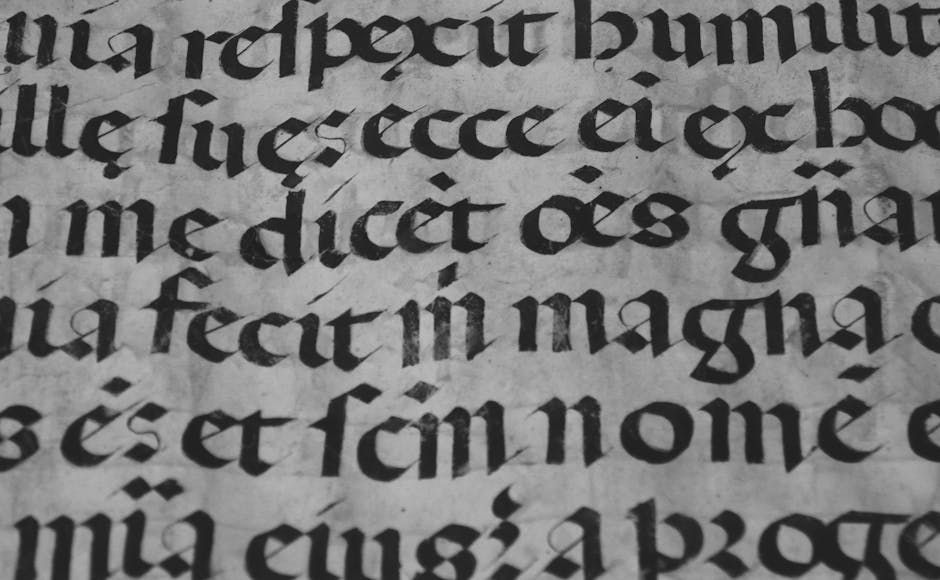 uia respexit humilit
ille suęs ecce ei ex hoc
n me dicēt oēs gn̄an
uia fecit m̄ magna q
s ēs et scm̄ nomē e
mīa eius a proge